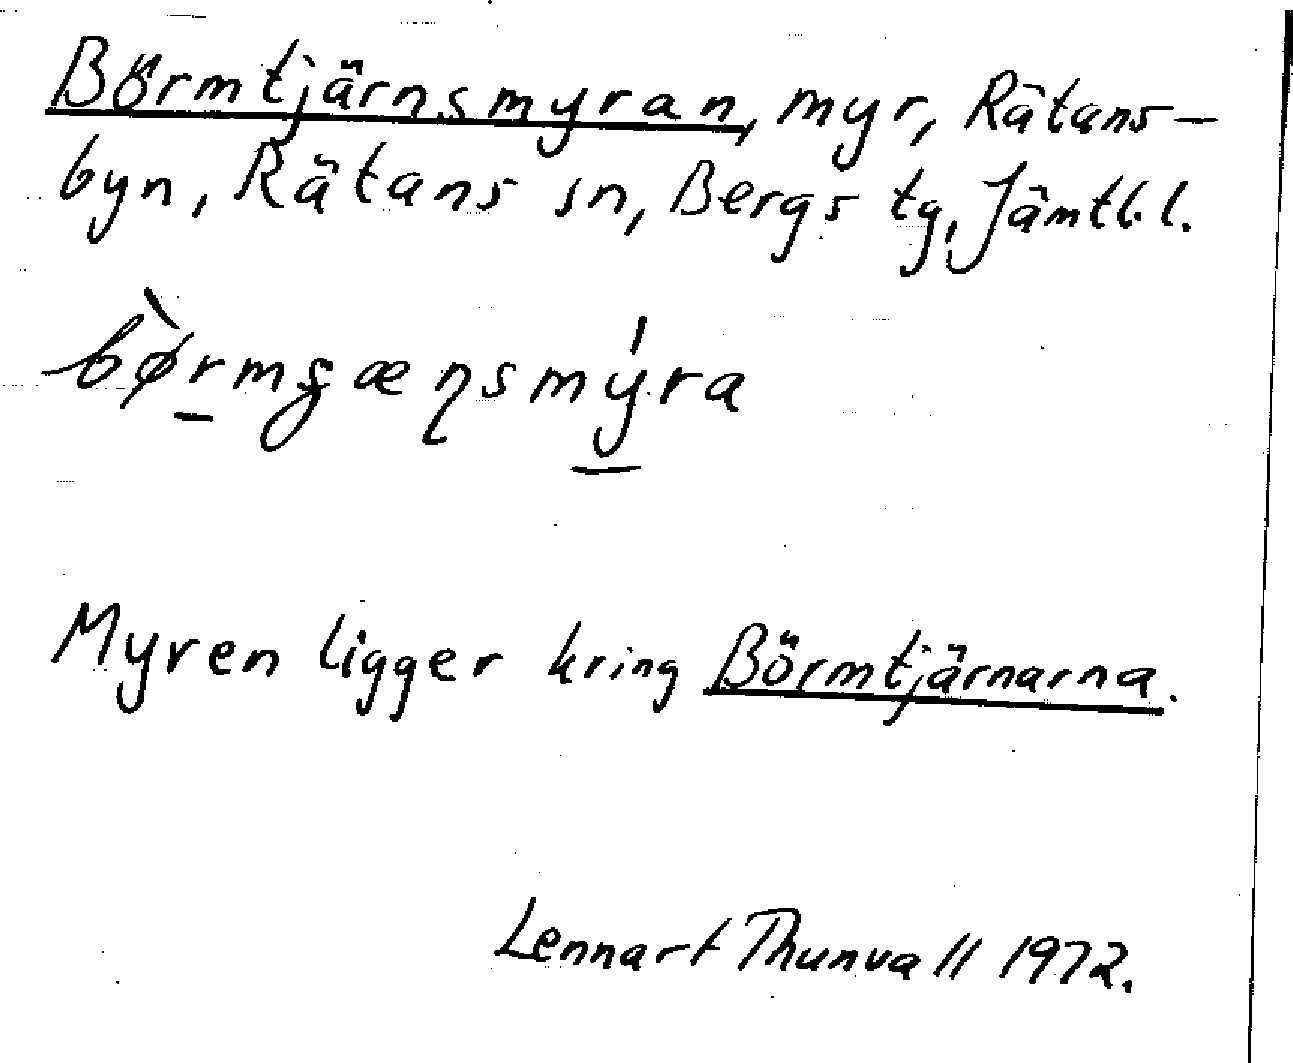 Börmtjärnsmyran, myr, Rätans-
byn, Rätans sn, Bergs tg, Jämtl. l.
bø̀rmʂæɳsmýra
Myren ligger kring Börmtjärnarna.
Lennart Thunvall 1972.